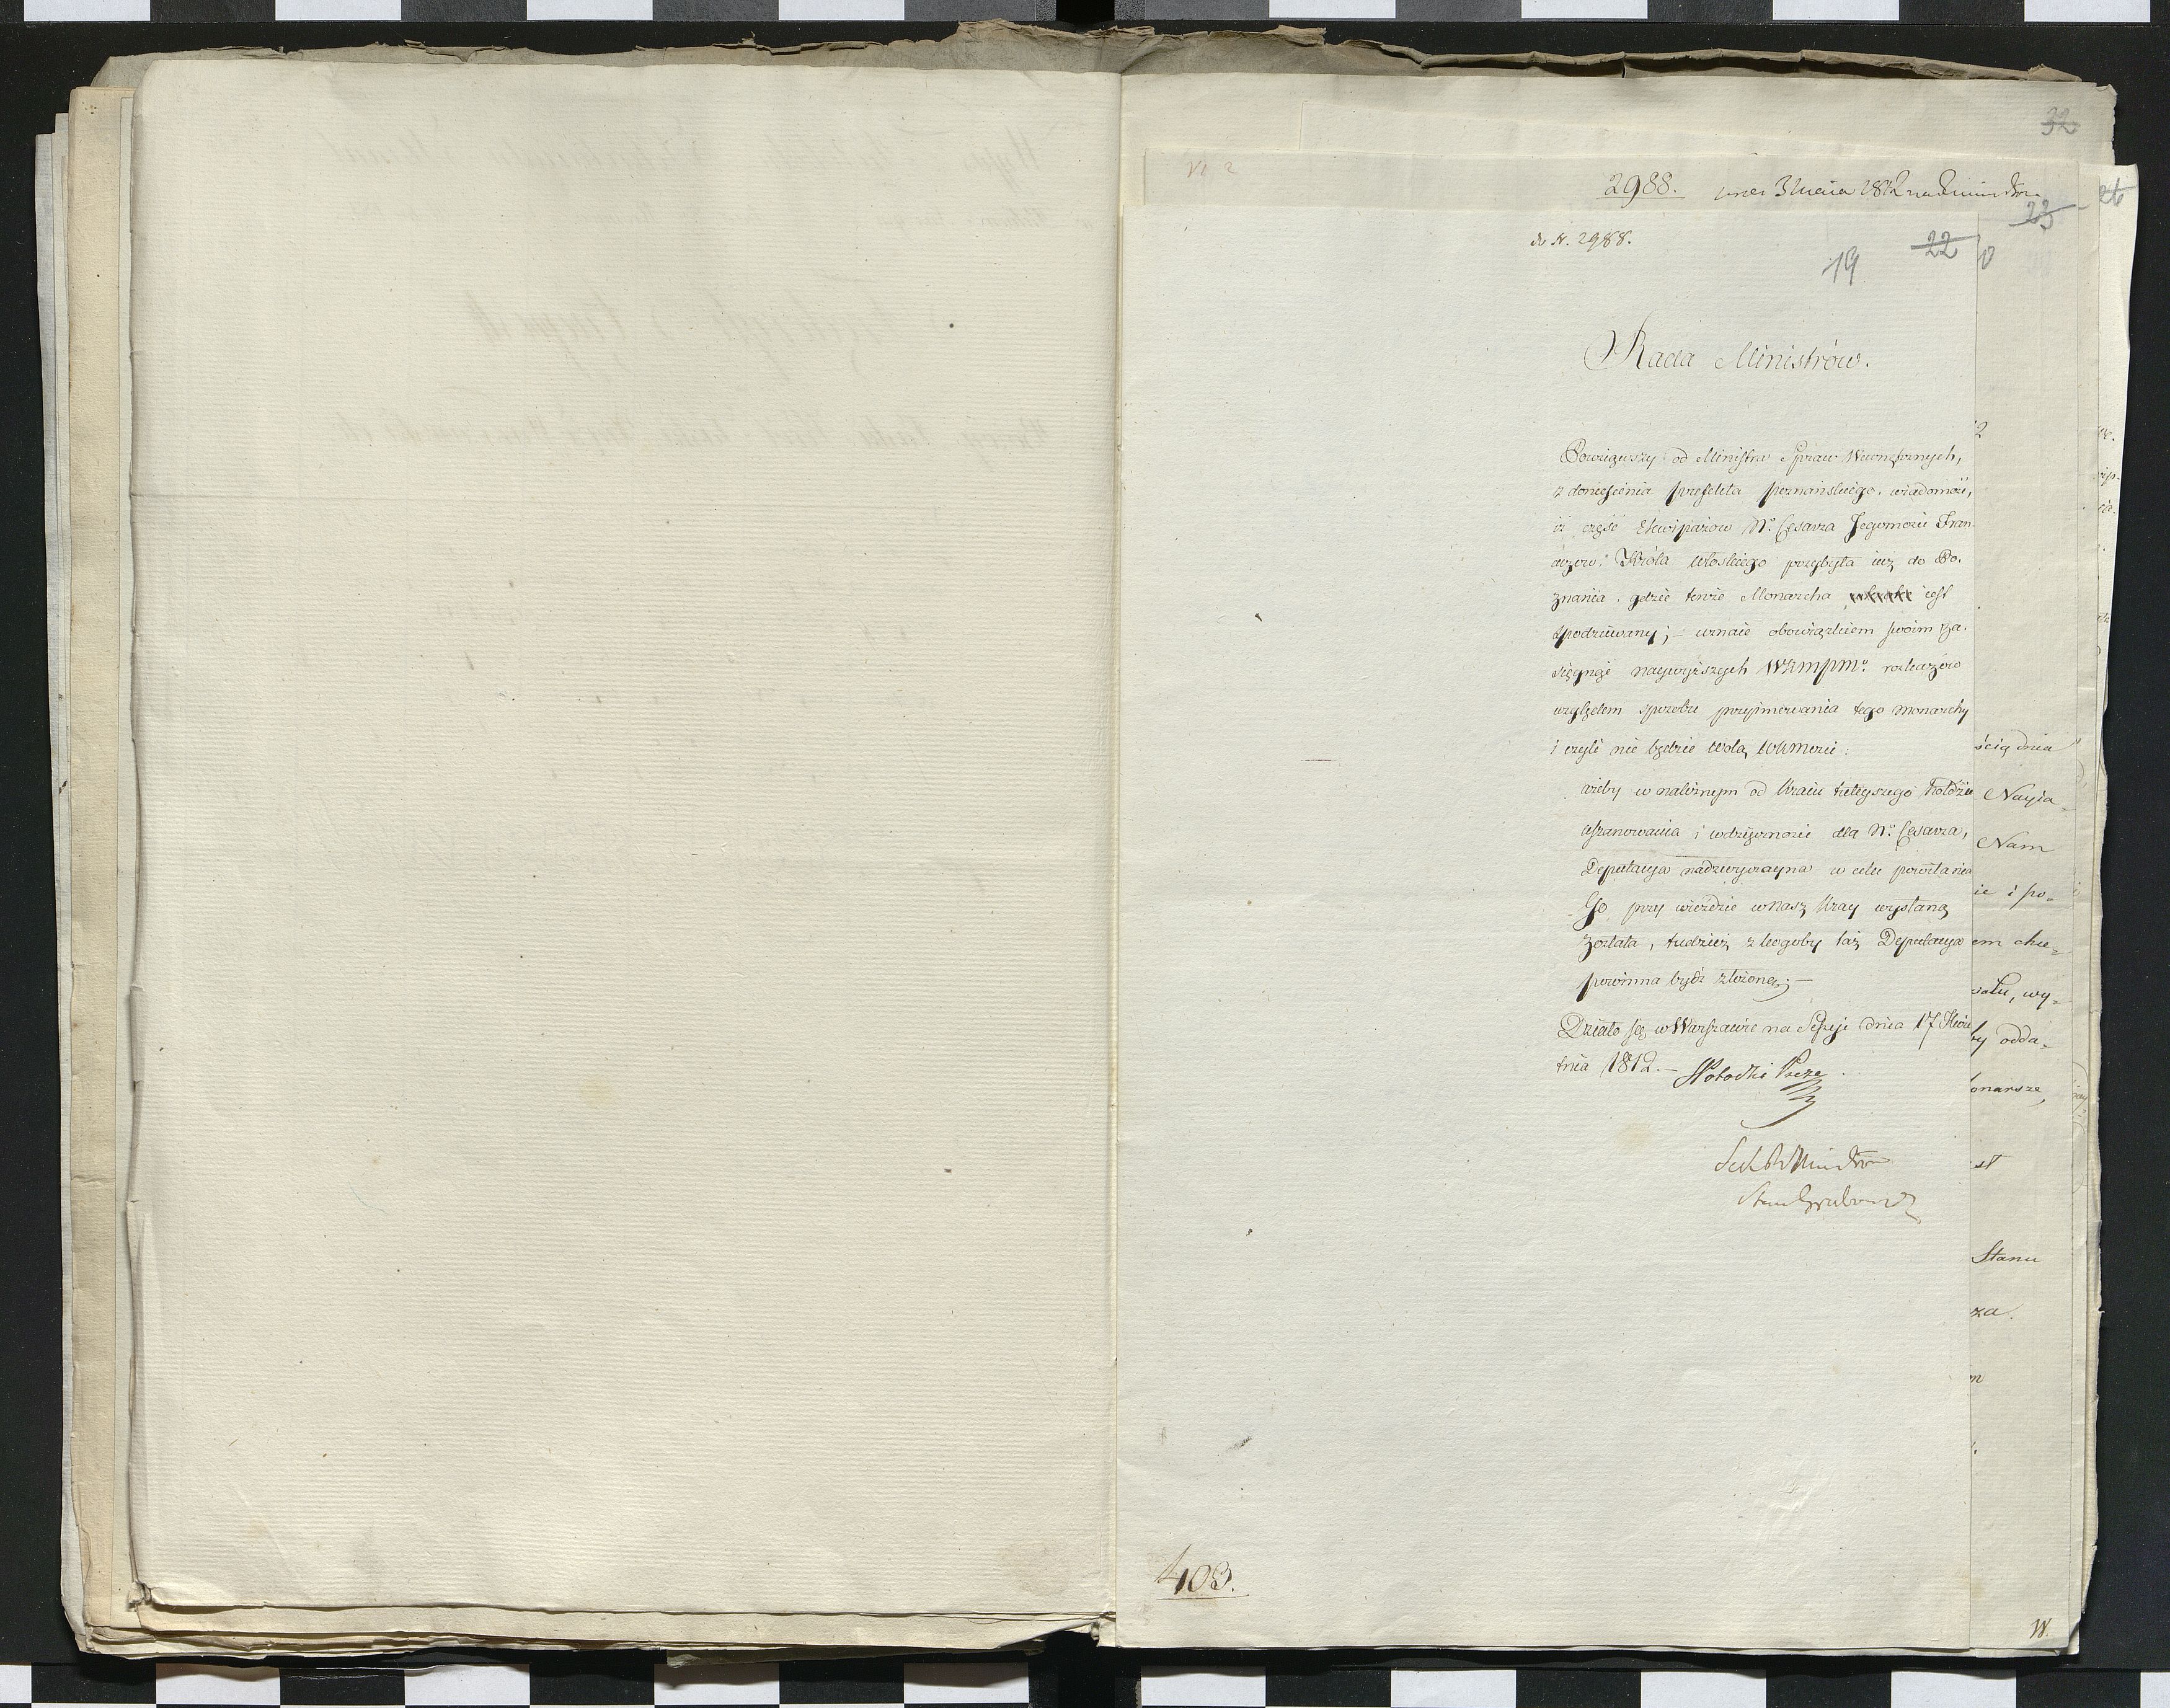 32
2988.
26
23
do N. 2988.
22
19
Rada Ministrów.
Powziąwszy od Ministra Spraw Wewnętrznych,
z doniesienia prefekta poznańskiego, wiadomość,
iż część Ekwipażow Nº. Cesarza Jegomości Fran-
cuzow, Króla włoskiego przybyła iuż do Po-
znania, gdzie tenże Monarcha iest
spodziéwany; – uznaie obowiązkiem swoim za-
sięgnąć naywyższych WKMPMº. rozkazów
względem sposobu przyjmowania tego monarchy
i czyli nie będzie wolą WKMości:
ażeby w należnym od Kraiu tuteyszego hołdzie
uszanowania i wdzięczności dla Nº. Cesarza,
Deputacya nadzwyczayna w celu powitania
Go przy wieźdźie w nasz Kray wysłaną
została, tudzież z kogoby taż Deputacya
powinna bydź złożoną; –
Działo się w Warszawie na Sessyi dnia 17 Kwie
tnia 1812. – SPotocki Preze
Sek R Ministrow
Stan Grabowski
ścią dnia
Nayia-
Nam
ie i po-
em chc-
wału, wy-
by odda-
onarsze,
st
Stanu
za.
m
403.
W.